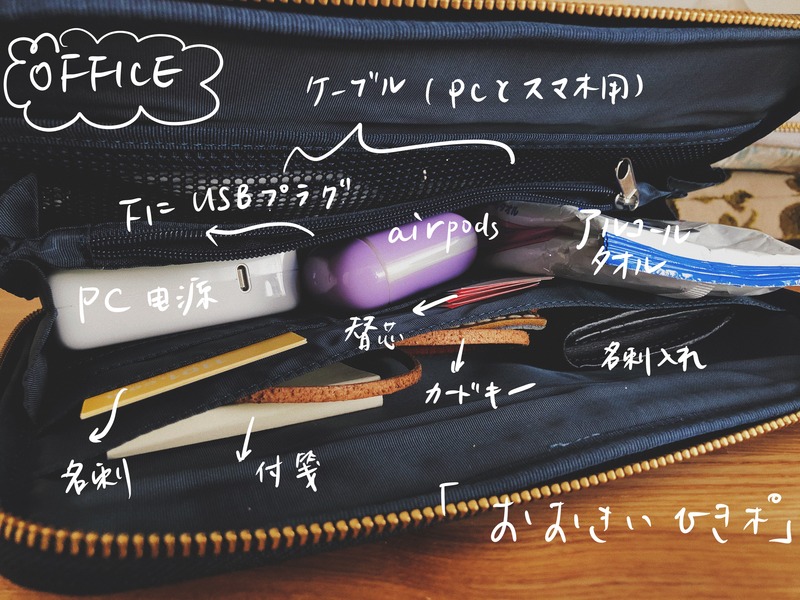 OFFICE
ケーブル(PCとスマホ用)
下に USBプラグ
airpods
アルコール
タオル
PC 电源
替芯
名刺入れ
カードキー
名刺
付箋
「おおきいひきポ」